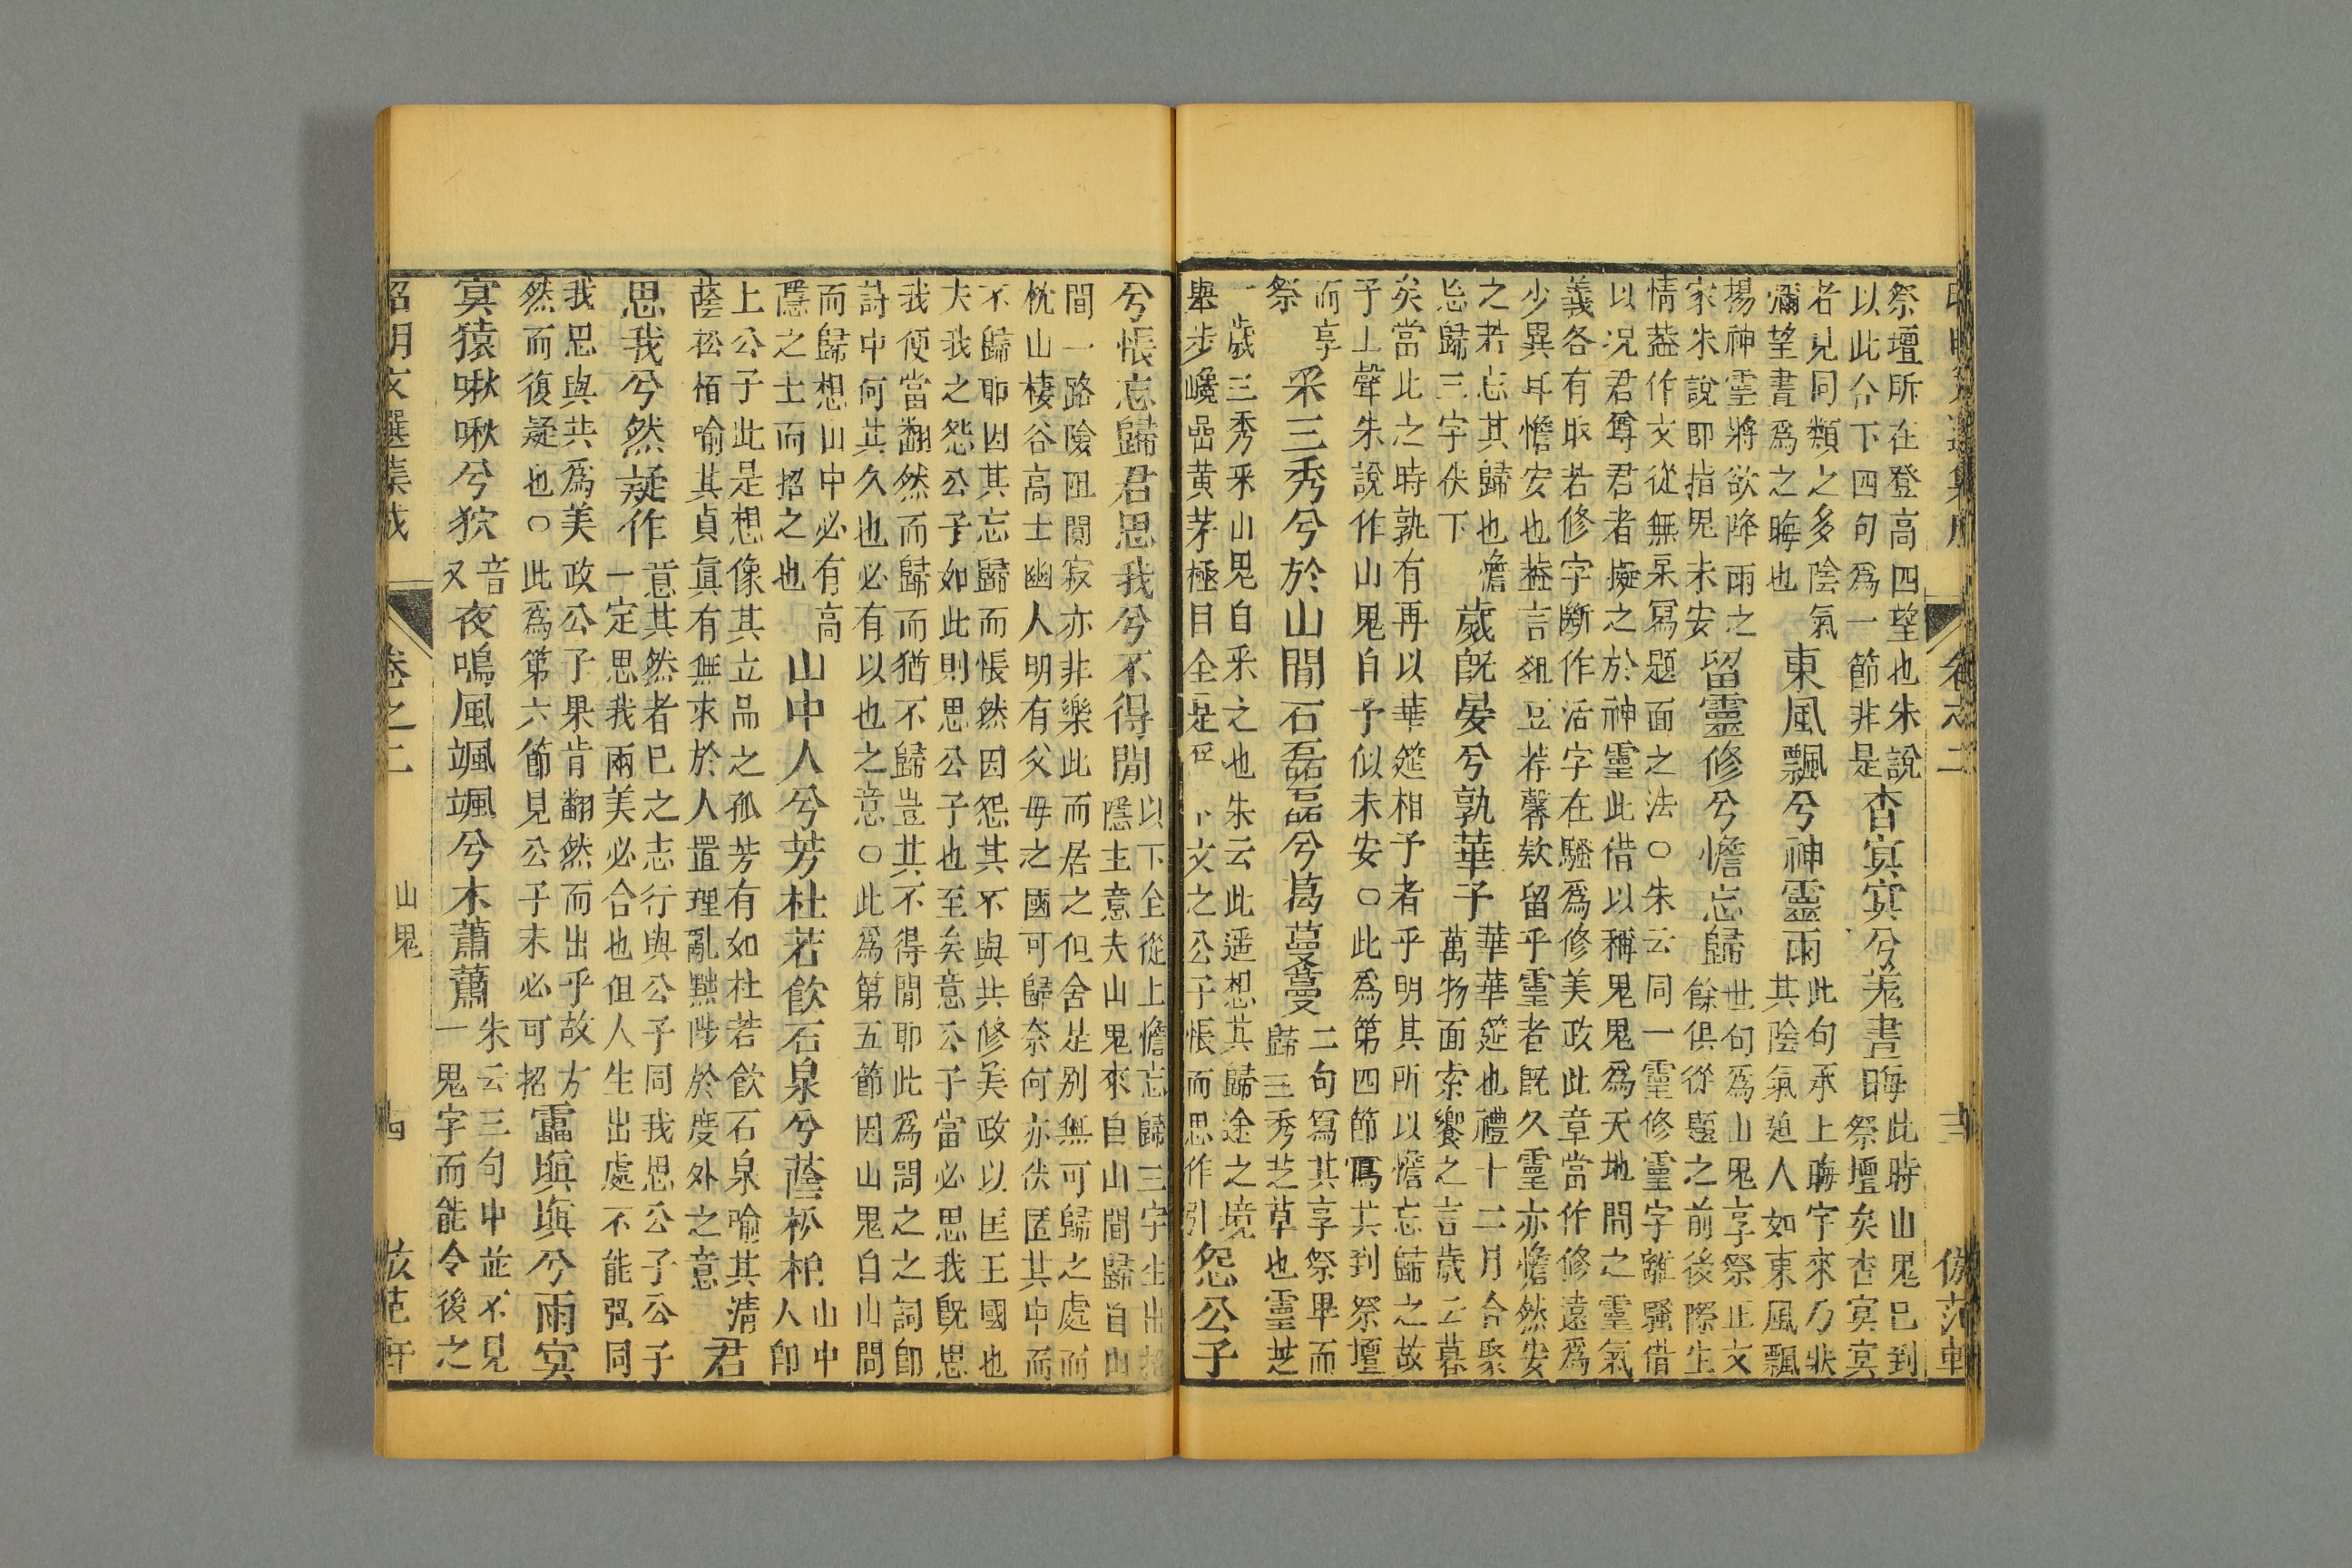 卷之二
祭壇所在登高四望也朱說
以此合下四句爲一節非是
杳冥冥兮羌晝晦
此時山鬼已到
祭壇矣杳冥冥
若見同類之多陰氣
瀰望晝爲之晦也
東風飄兮神靈雨
此句承上晦字來乃狀
其陰氣廹人如東風飄
揚神靈將欲降雨之
家朱說即指鬼未安
留靈修兮憺忘歸
世句爲山鬼享祭正文
餘俱從題之前後際生
情葢作文從無呆冩題面之法○朱云同一靈修靈字離騷借
以况君尊君者擬之於神靈此借以稱鬼鬼爲天地間之靈氣
義各有取若修字斷作活字在騷爲修美政此章當作修遠爲
少異耳憺安也葢言俎豆荐馨欵留乎靈者旣久靈亦憺然安
之若忘其歸也憺
忘歸三字伏下
歲旣晏兮孰華予
華華筵也禮十二月合聚
萬物面索饗之言歲云暮
矣當此之時孰有再以華筵相予者乎明其所以憺忘歸之故
予上聲朱說作山鬼自予似未安○此爲第四節冩其到祭壇
而享
祭
采三秀兮於山間石磊磊兮葛蔓蔓
二句冩其享祭畢而
歸三秀芝草也靈芝
一歲三秀采山鬼自采之也朱云此遥想其歸途之境
舉步巉嵒黄茅極目全是 下文之公子悵而思作引
怨公子
兮悵忘歸君思我兮不得閒
以下全從上憺忘歸三字生出
隱主意夫山鬼來自山間歸自山
間一路險阻闃寂亦非樂此而居之但舍是別無可歸之處而
枕山棲谷高士幽人明有父母之國可歸奈何亦伏匿其中而
不歸耶因其忘歸而悵然因怨其不與共修美政以匡王國也
夫我之怨公子如此則思公子也至矣意公子當必思我旣思
我便當翻然而歸而猶不歸豈其不得閒耶此爲問之之詞卽
詩中何其久也必有以也之意○此爲第五節因山鬼自山間
而歸想山中必有高
隱之士而招之也
山中人兮芳杜若飮石泉兮蔭松柏
山中
人卽
上公子此是想像其立品之孤芳有如杜若飮石泉喻其清
蔭松栢喻其貞眞有無求於人置理亂黜陟於度外之意
君
思我兮然疑作
意其然者已之志行與公子同我思公子公子
一定思我兩美必合也但人生出處不能强同
我思與共爲美政公子果肯翻然而出乎故方
然而復疑也○此爲第六節見公子未必可招
靁塡塡兮雨冥
冥猿啾啾兮狖
音
又
夜鳴風颯颯兮木蕭蕭
朱云三句中並不見
一鬼字而能令後之
昭明文選集成
卷之二
山鬼